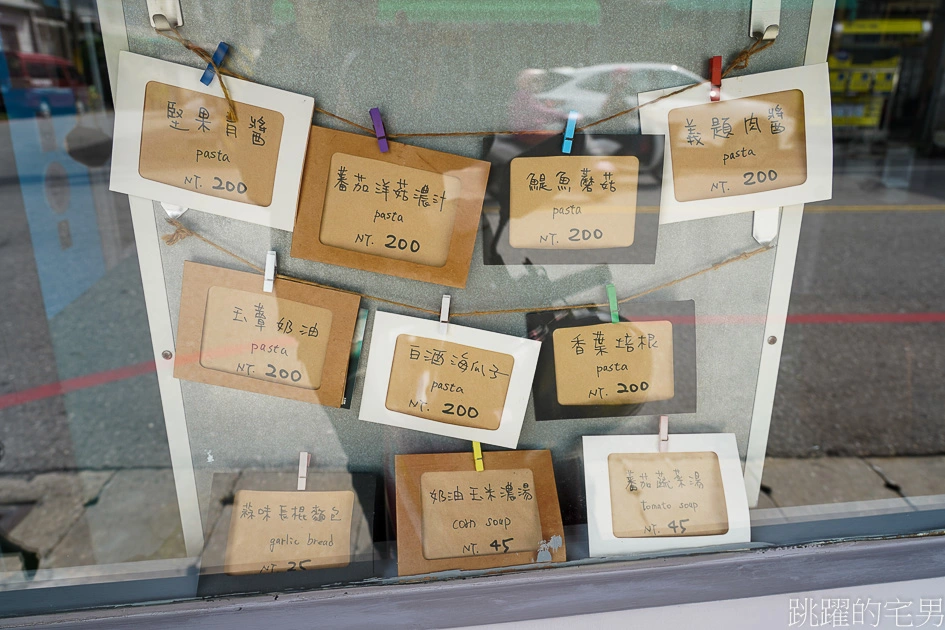 堅果青醬
pasta
NT. 200
蕃茄洋菇濃汁
pasta
NT. 200
鯷魚蘑菇
pasta
NT. 200
義題肉醬
pasta
NT. 200
玉蕈奶油
pasta
NT. 200
白酒海瓜子
pasta
NT. 200
香葉培根
pasta
NT. 200
蒜味長棍麵包
garlic bread
NT. 25
奶油玉米濃湯
corn soup
NT. 45
蕃茄蔬菜湯
tomato soup
NT. 45
跳躍的宅男